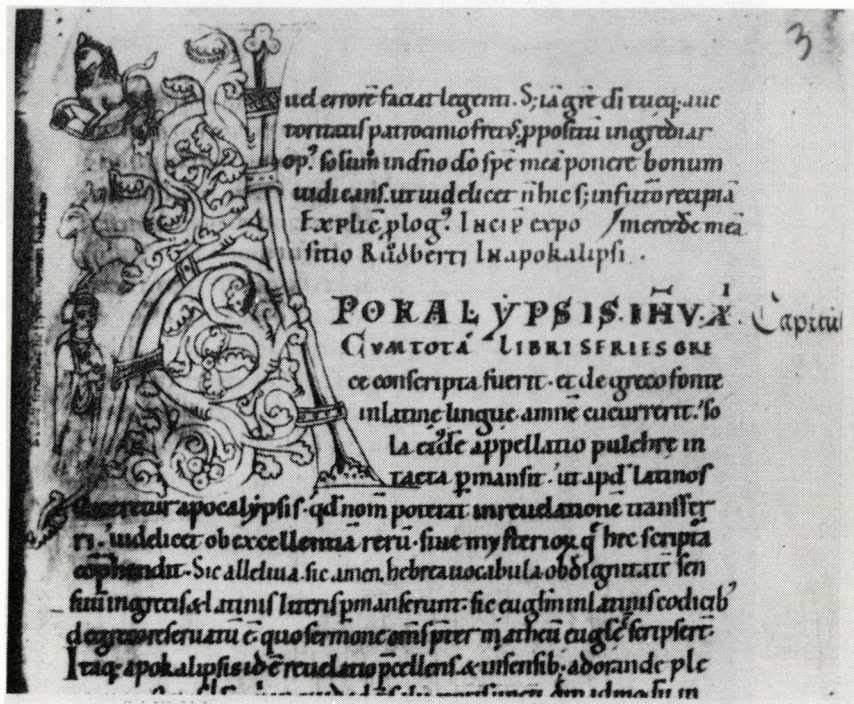 3
uel errorē faciat legenti. S; iā grē di tueq; auc
toritatis patrocinio fretꝰ, ppositū ingrediar
opꝰ. solum in dn̄o dō spē meā ponere bonum
iudicans. ut uidelicet n̄ hic s; in futuro recipiā
Explic̄ plogꝰ. Incip̄ expo / mercede meā
sitio Rŭdberti In apokalipsi.
POKALẎPSIS. IH̄V. XI.
Capitul
CVM TOTA LIBRI SERIES GRE
ce conscripta fuerit. et de greco fonte
in latine lingue amnē cucurrerit. so
la eiꝰde appellatio pulchre in
tacta pmansit. ut apd latinos
apocalẏpsis. qd nom̄ poterat in reuelationē transfer
ri. uidelicet ob excellentiā rerū. siue mẏsterioꝝ q̄ hec scripta
cōphendit. Sic alleluia. sic amen. hebrea uocabula. ob dignitatē sen
suū in grecis & latinis litteris pmanserunt. sic in latinis codicibꝰ
de greco reseruatū ē. quo sermone om̄s pter matheū scripser̄t.
Itaq; apokalipsis id ē reuelatio pcellens. & insensib; adorande ple